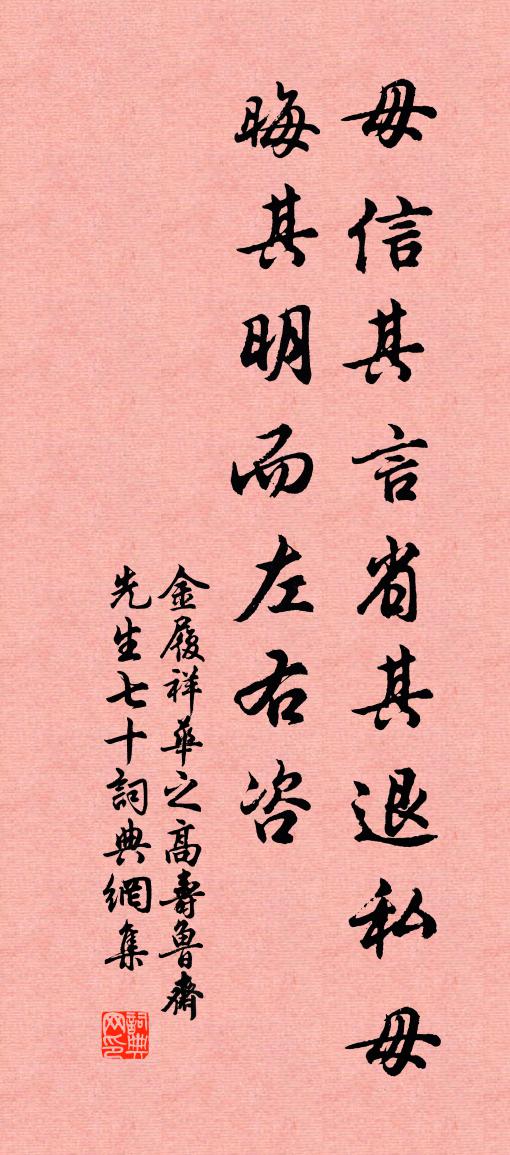 毋信其言省其退私毋
晦其明而左右咨
金履祥華之高壽魯齋
先生七十詞典網集
詞典網印